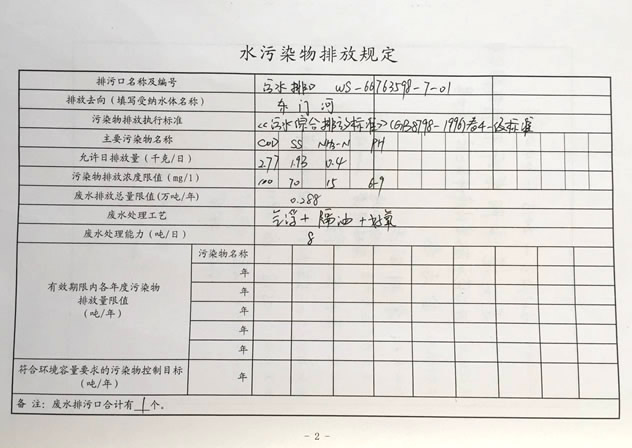 水污染物排放规定
排污口名称及编号 污水排口 WS-66763598-7-01
排放去向（填写受纳水体名称） 东门河
污染物排放执行标准 《污水综合排放标准》(GB8978-1996)表4一级标准
主要污染物名称 COD SS NH3-N PH
允许日排放量（千克/日） 2.77 1.93 0.4
污染物排放浓度限值（mg/l） 100 70 15 6-9
废水排放总量限值(万吨/年) 0.288
废水处理工艺 气浮+隔油+
废水处理能力（吨/日） 8
有效期限内各年度污染物
排放量限值
（吨/年）
污染物名称
年
年
年
年
年
符合环境容量要求的污染物控制目标
（吨/年）
年
备 注：废水排污口合计有 1 个。
- 2 -